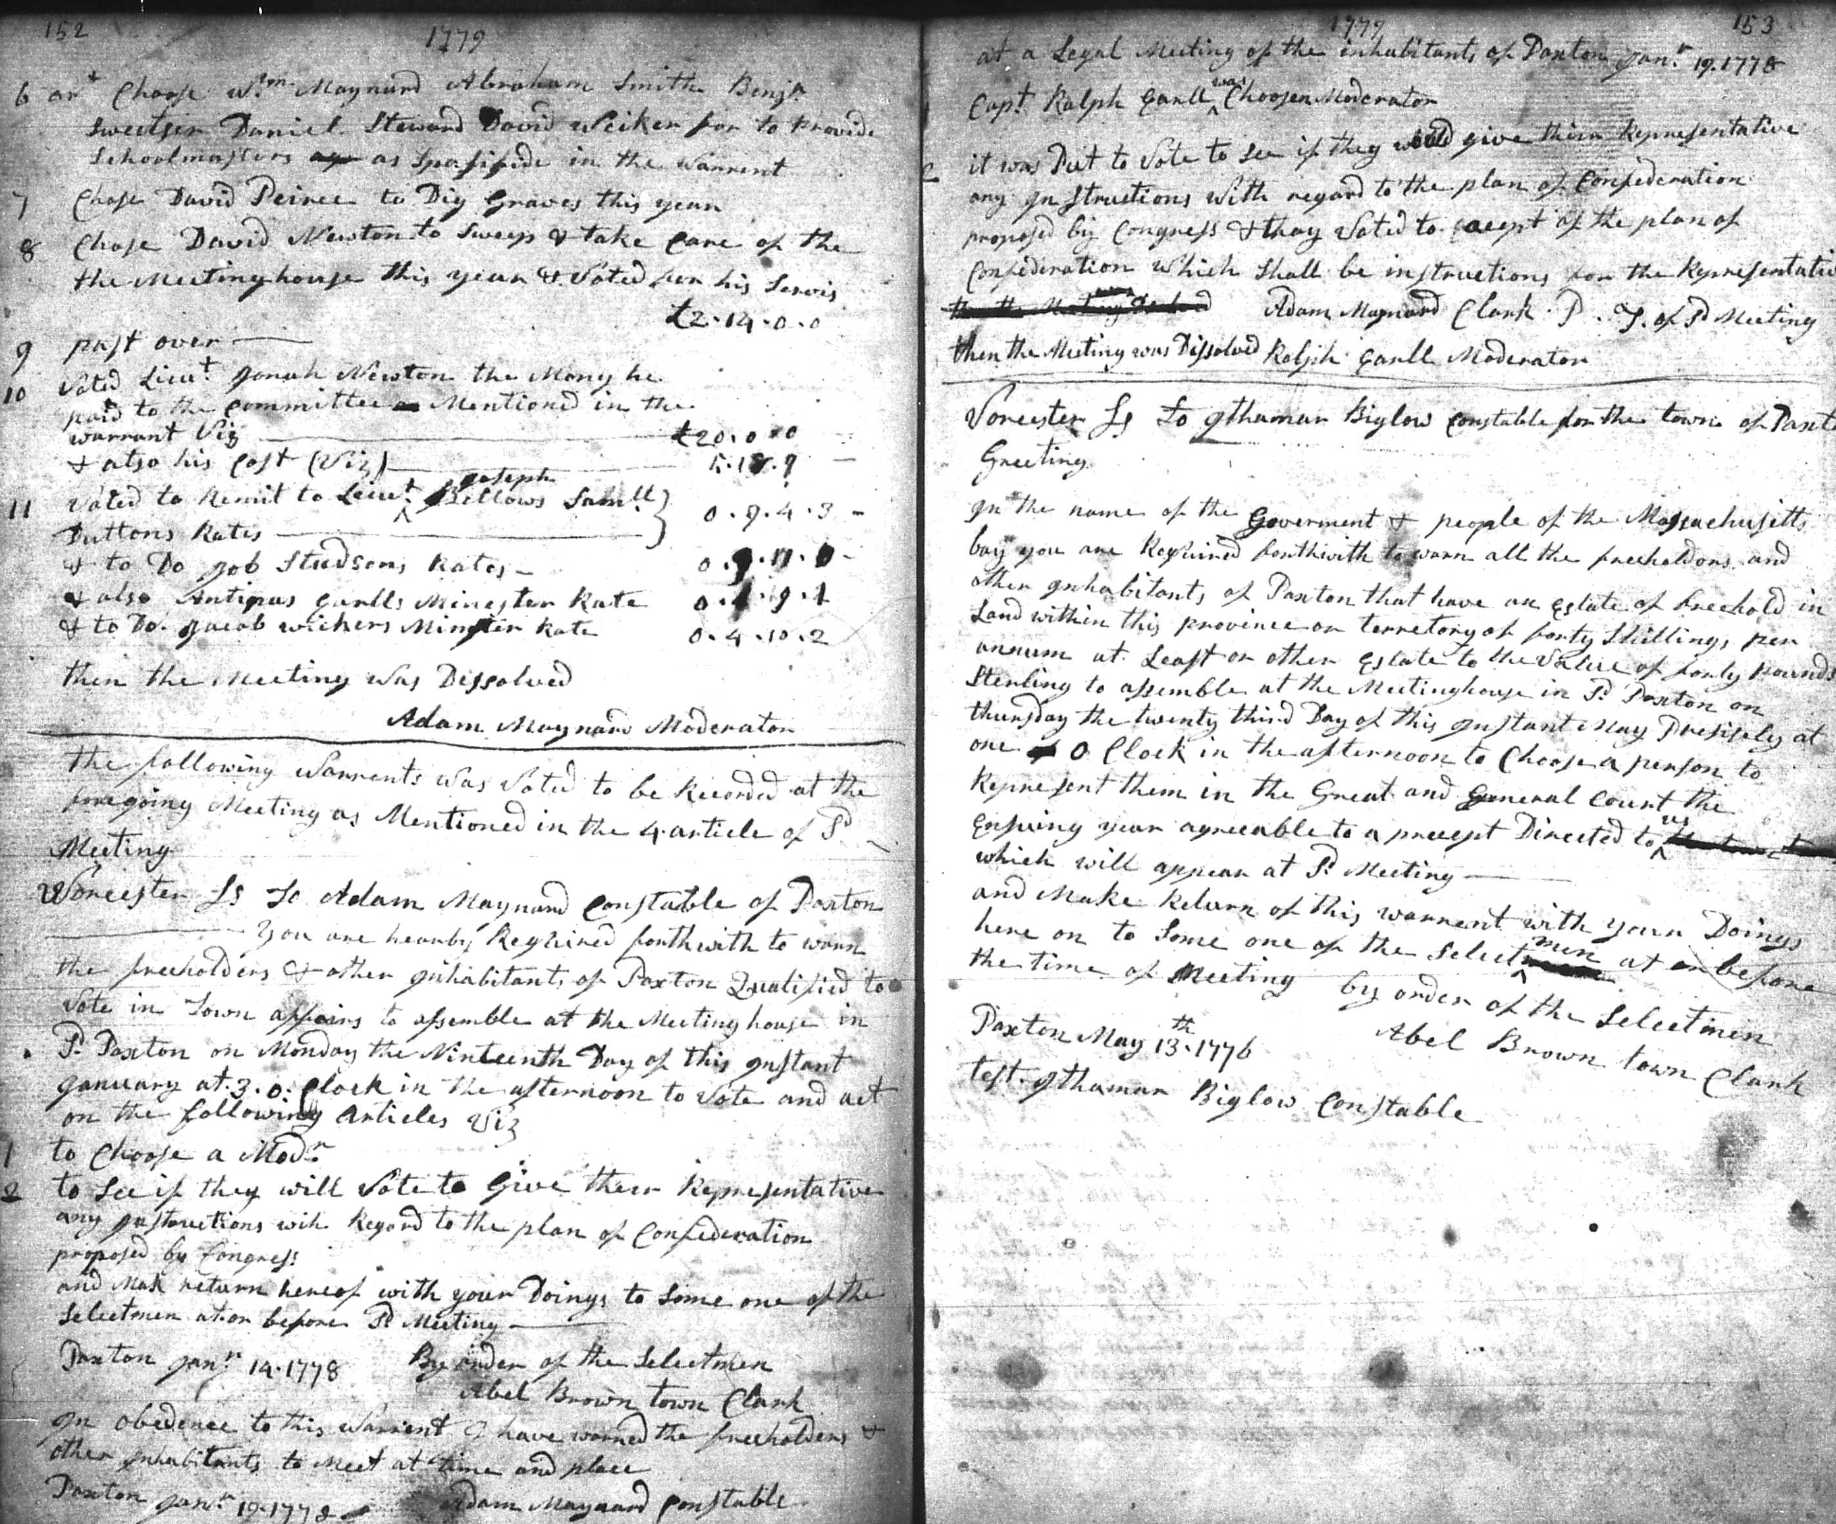 152
1779
6 art Choose Wm Maynard Abraham Smith Benja
Sweetser Daniel Steward David Weiker for to Provide
Schoolmasters as Spasifide in the Warrent
7 Chose David Peirce to Dig Graves this year
8 Chose David Newton to Sweep & take Care of the
the Meetinghouse this year & Voted for his Servis
£2.14.0.0
9 past over
10 Voted Lieut Jonah Newton the Mony he
paid to the Committee Mentioned in the
warrant Viz £20.0.0
& also his Cost (Viz)
Joseph
11 Voted to Remit to Lieut Bellows Samll
Duttons Rates } 0.9.4.3
& to Do Job Studsons Rates
& also Antipas Earlls Minester Rate
& to Do. Jacob Wickers Minster Rate 0.4.10.2
then the Meeting Was Dissolved
Adam Maynard Moderator
the following Warrents Was Voted to be Recorded at the
foregoing Meeting as Mentioned in the 4 article of Sd
Meeting
Worcester Ss To Adam Maynard Constable of Paxton
You are hearby Required forthwith to warn
the freeholders & other Inhabitants of Paxton Qualified to
Vote in Town affairs to assemble at the Meeting house in
Sd Paxton on Monday the Ninteenth Day of this Instant
January at 3.0.Clock in the afternoon to Vote and act
on the following Articles Viz
1 to Choose a Modr
2 to See if they will Vote to Give their Representative
any Instructions with Regard to the plan of Confederation
proposed by Congress
and Mak return hereof with your Doings to Some one of the
Selectmen at or before Sd Meeting
Paxton Janr 14.1778 By order of the Selectmen
Abel Brown town Clark
In Obedence to this Warrent I have warned the freeholders &
other Inhabitants to Meet at time and place
Paxton Janr 19.1778 Adam Maynard Constable
1779
153
at a Legal Meeting of the inhabitants of Paxton Janr 19.1778
was
Capt Ralph Earll Choosen Moderator
2 it was Put to Vote to See if they would give their Representative
any Instructions With regard to the plan of Confederation
proposed by Congress & they Voted to Accept of the plan of
Confederation Which Shall be instructions for the Representative
Adam Maynard Clark P. T. of Sd Meeting
then the Meeting was Dissolved Ralph Earll Moderator
Worcester Ss To Ithamar Biglow Constable for the town of Paxton
Greeting
In the name of the Goverment & people of the Massachusitts
bay you are Required forthwith to warn all the freeholdors and
other Inhabitants of Paxton that have an Estate of freehold in
Land within this province or terretory of forty Shillings per
annum at Least or other Estate to the Value of forty pounds
Sterling to assemble at the Meetinghouse in Sd Paxton on
thursday the twenty third Day of this Instant May Presisely at
one O Clock in the afternoon to Choose a person to
Represent them in the Great and General Court the
us
Ensuing year agreeable to a precept Directed to
which will appear at Sd Meeting
and Make Return of this warrent with your Doings
men
here on to Some one of the Select at or before
the time of Meeting by order of the Selectmen
Paxton May 13th 1776 Abel Brown town Clark
test. Ithamar Biglow Constable